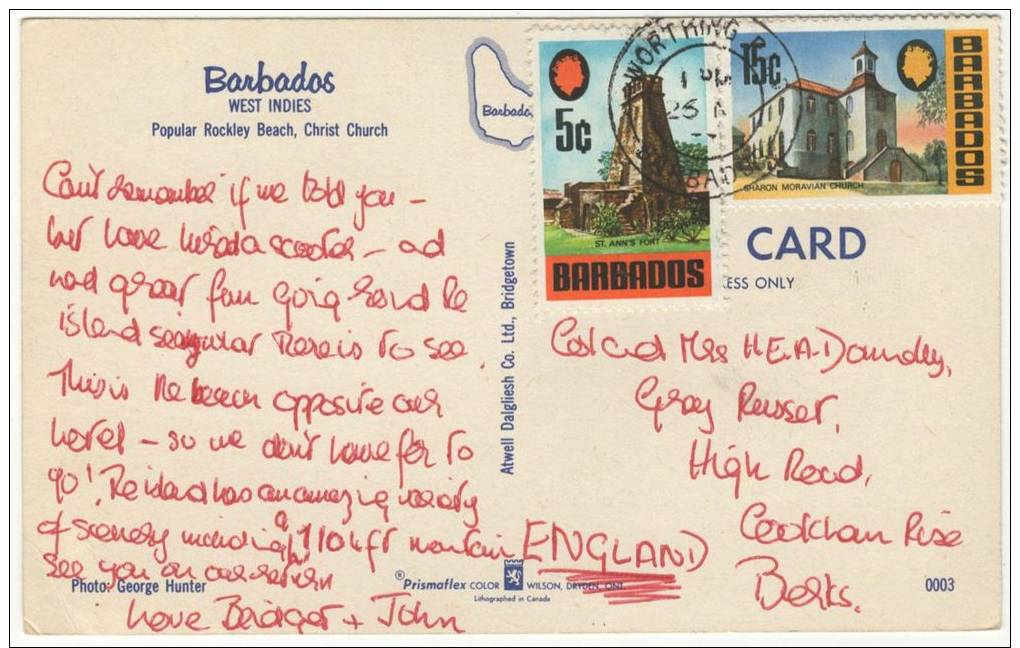 Barbados
WEST INDIES
Popular Rockley Beach, Christ Church
Can't remember if we told you -
but have hired a scooter - and
had great fun going round the
island seeing what there is to see.
This is the beach opposite our
hotel - so we don't have far to
go! The island has an amazing variety
of scenery including a 1104 ft mountain
See you on our return
Love Bridget + John
Photo: George Hunter
Atwell Dalgliesh Co. Ltd., Bridgetown
®Prismaflex COLOR WILSON, DRYDEN, ONT.
Lithographed in Canada
Barbados
5c
ST. ANN'S FORT
BARBADOS
15c
SHARON MORAVIAN CHURCH
BARBADOS
WORTHING
1 PM
CARD
ESS ONLY
Col and Mrs H.E.A.
Gray
High Road,
Cookham Rise
Berks.
ENGLAND
0003